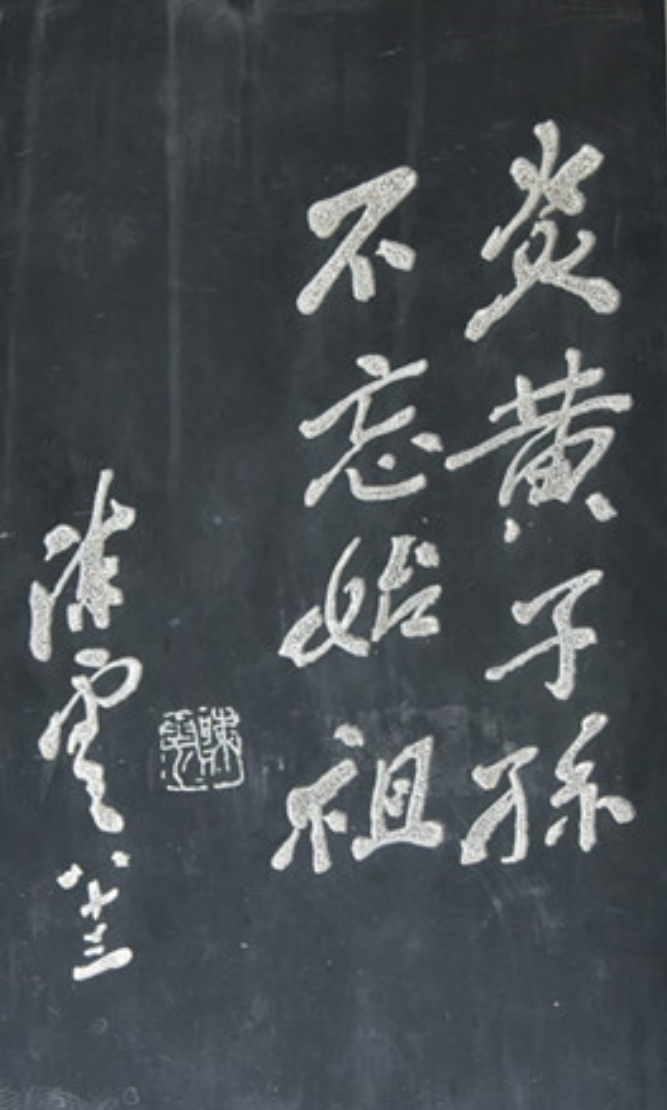 炎黄子孫
不忘始祖
陳雲八十三
陳雲